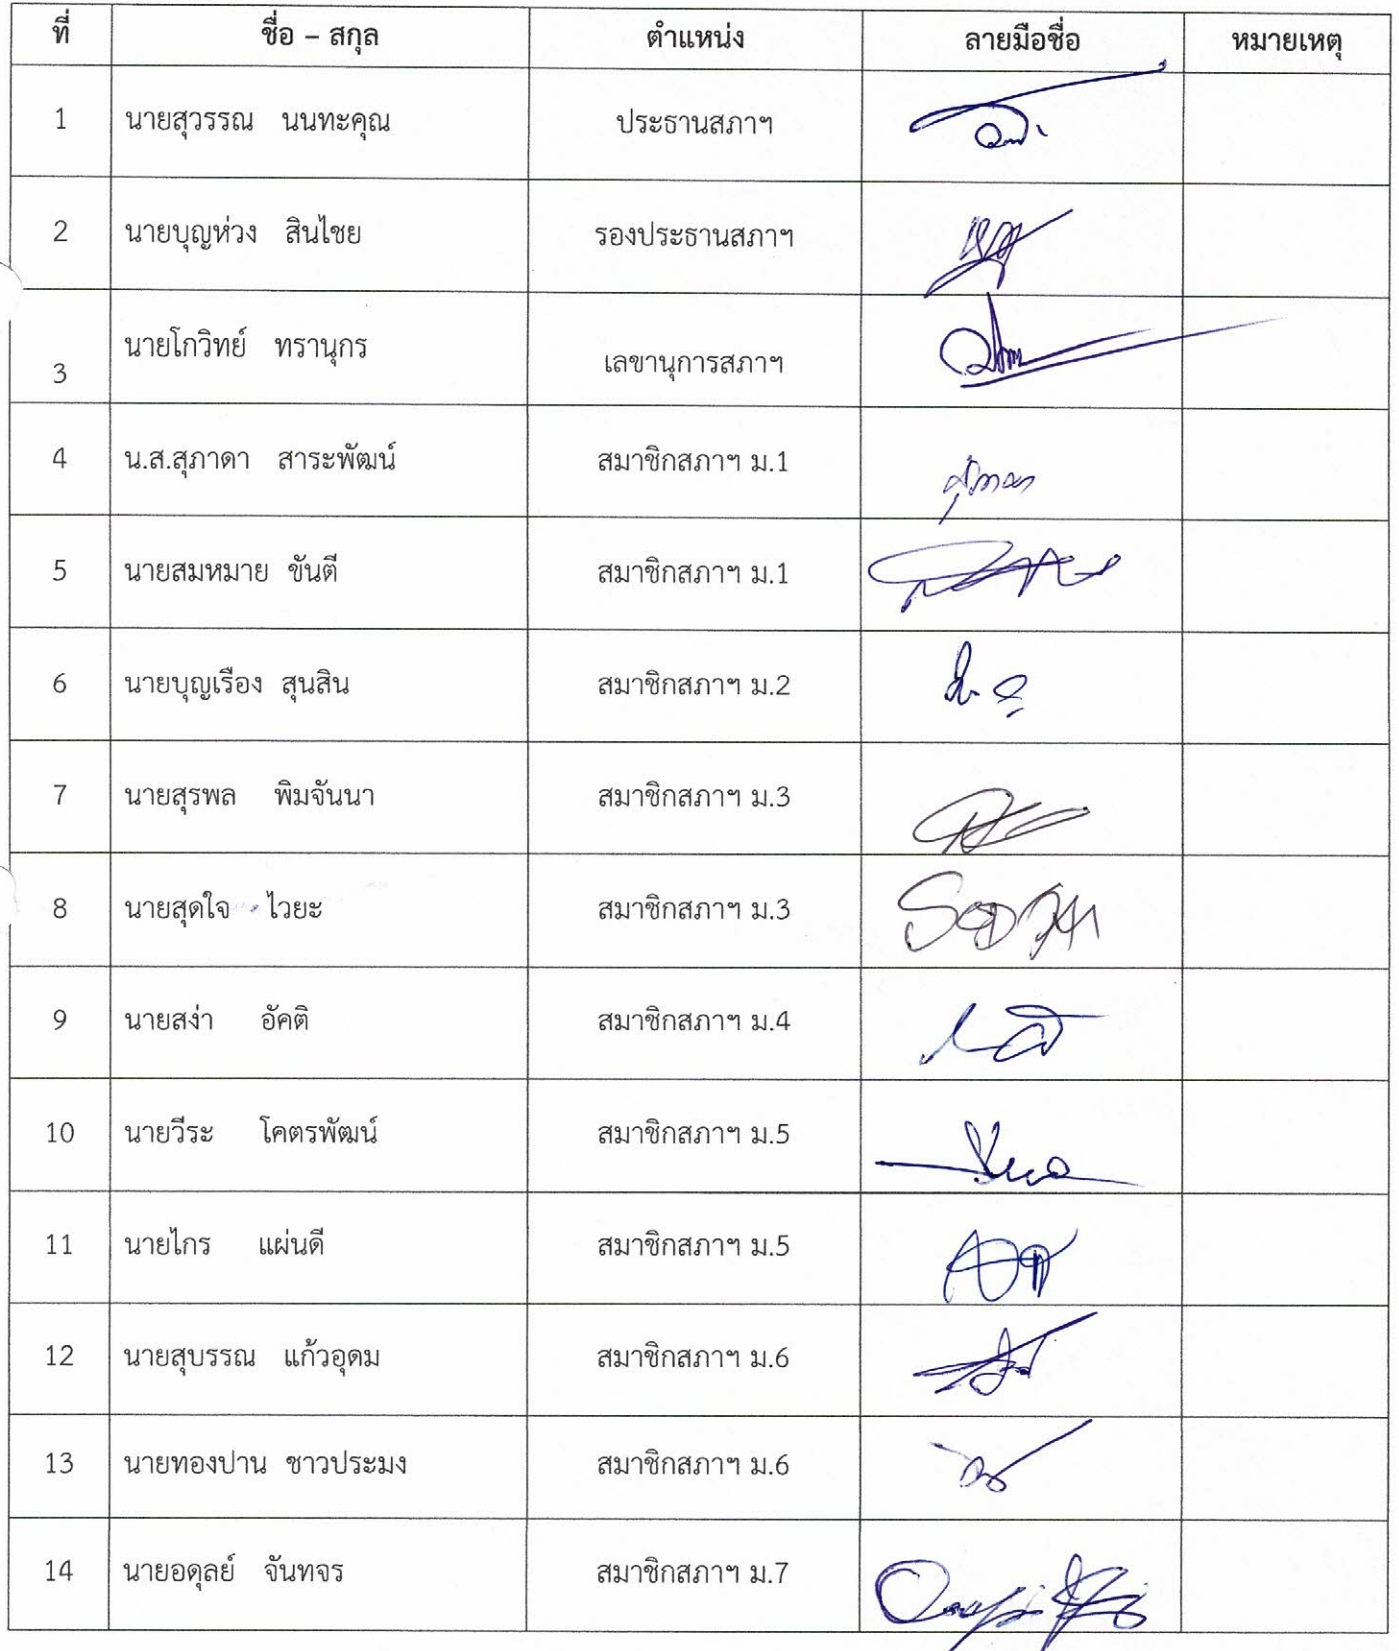 ที่ ชื่อ – สกุล ตำแหน่ง ลายมือชื่อ หมายเหตุ
1 นายสุวรรณ นนทะคุณ ประธานสภาฯ
2 นายบุญห่วง สินไชย รองประธานสภาฯ
3 นายโกวิทย์ ทรานุกร เลขานุการสภาฯ
4 น.ส.สุภาดา สาระพัฒน์ สมาชิกสภาฯ ม.1 สุภาดา
5 นายสมหมาย ขันตี สมาชิกสภาฯ ม.1
6 นายบุญเรือง สุนสิน สมาชิกสภาฯ ม.2
7 นายสุรพล พิมจันนา สมาชิกสภาฯ ม.3
8 นายสุดใจ ไวยะ สมาชิกสภาฯ ม.3
9 นายสง่า อัคติ สมาชิกสภาฯ ม.4
10 นายวีระ โคตรพัฒน์ สมาชิกสภาฯ ม.5
11 นายไกร แผ่นดี สมาชิกสภาฯ ม.5
12 นายสุบรรณ แก้วอุดม สมาชิกสภาฯ ม.6
13 นายทองปาน ชาวประมง สมาชิกสภาฯ ม.6
14 นายอดุลย์ จันทจร สมาชิกสภาฯ ม.7